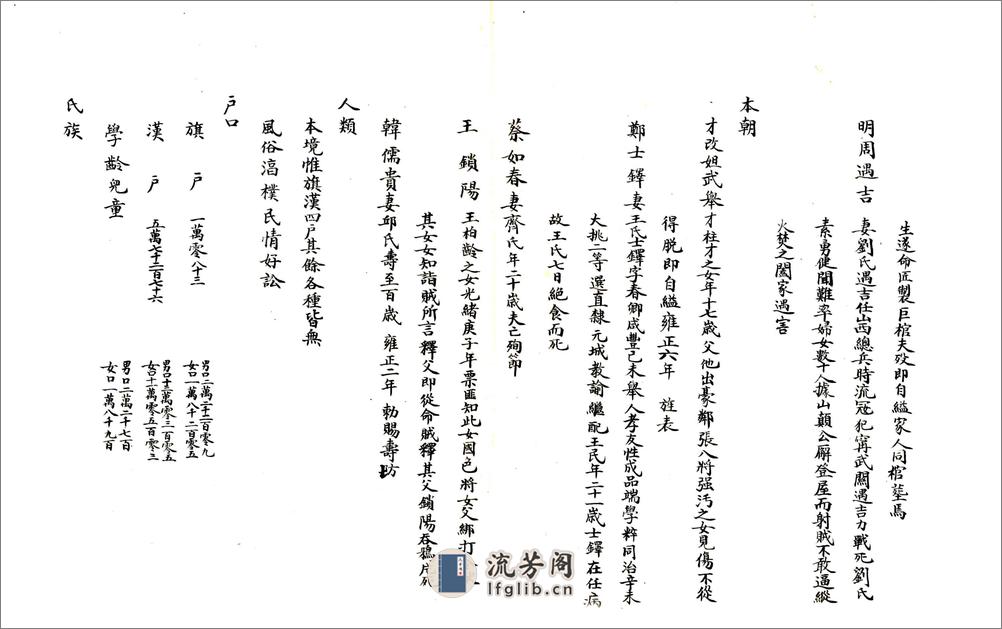 生遂命匠製巨棺夫歿即自縊家人同棺塟馬
明周遇吉 妻劉氏遇吉任山西總兵時流冦犯寗武關遇吉力戰死劉氏
素勇健聞難率婦女數十人據山顛公廨登屋而射賊不敢逼縱
火焚之闔家遇害
本朝
才改姐武舉才柱才之女年十七歲父他出豪鄰張八將强汚之女見傷不從
得脱即自縊雍正六年 旌表
鄭士鐸妻王氏士鐸字春卿咸豐己未舉人孝友性成品端學粹同治辛未
大挑二等選直隸元城教諭繼配王民年二十一歲士鐸在任病
故王氏七日絕食而死
蔡如春妻齊氏年二十歲夫亡殉節
王 鎖陽 王柏齡之女光緒庚子年票匪知此女國色將女父綁打
其女女知詣賊所言釋父即從命賊釋其父鎖陽吞鴉片死
韓儒貴妻邱氏壽至百歲 雍正二年 勅賜壽昉
人類
本境惟旗漢四戸其餘各種皆無
風俗滈樸民情好訟
戸口
旗 戸 一萬零八十三 男口二萬二十二百零九 女口一萬八十二百零五
漢 戸 五萬七十二百七十六 男口十三萬零三百零五 女口十一萬零五百零三
學齡兒童 男口二萬二千七百 女口一萬八千九百
氏族
流芳阁
lfglib.cn